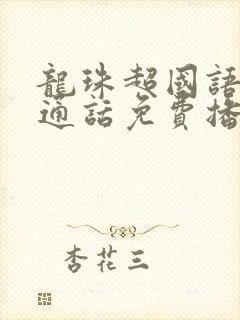 龍珠超國語
通話免費播
杏花三